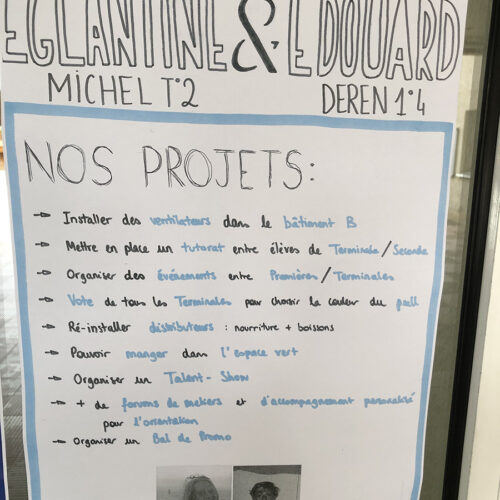 EGLANTINE & EDOUARD
MICHEL T°2 DEREN 1°4
NOS PROJETS:
→ Installer des ventilateurs dans le bâtiment B
→ Mettre en place un tutorat entre élèves de Terminale/Seconde
→ Organiser des événements entre Premières/Terminales
→ Vote de tous les Terminales pour choisir la couleur du pull
→ Ré-installer distributeurs : nourriture + boissons
→ Pouvoir manger dans l'espace vert
→ Organiser un Talent-Show
→ + de forums de métiers et d'accompagnement personnalisé
pour l'orientation
→ Organiser un Bal de Promo